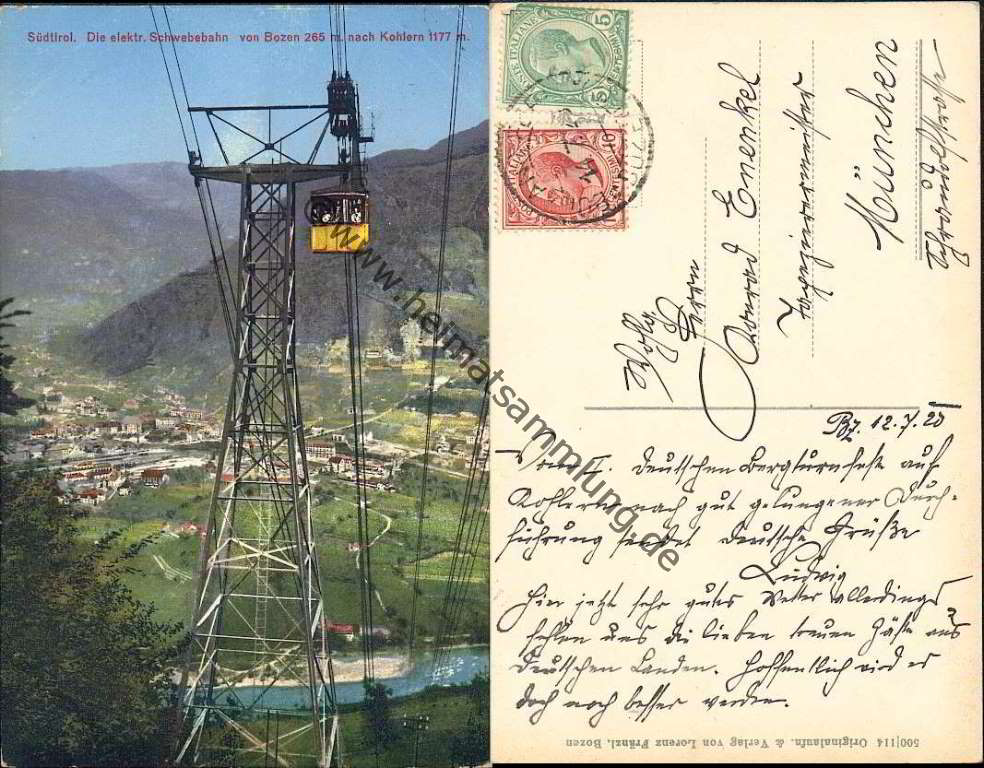 Südtirol. Die elektr. Schwebebahn von Bozen 265 m. nach Kohlern 1177 m.
© www.heimatsammlung.de
Wohlg.
Herrn
Konrad Enenkel
Tapeziermeister
München
Bz. 12.7.20
Vom II. deutschen Bergturnfest auf
Kohlern nach gut gelungener Durch=
führung sendet deutsche Grüße
Ludwig
Hier jetzt sehr gutes Wetter allerdings
fehlen uns die lieben treuen Gäste aus
deutschen Landen. Hoffentlich wird es
doch noch besser werden.
500|114 Originalaufn. & Verlag von Lorenz Fränzl, Bozen